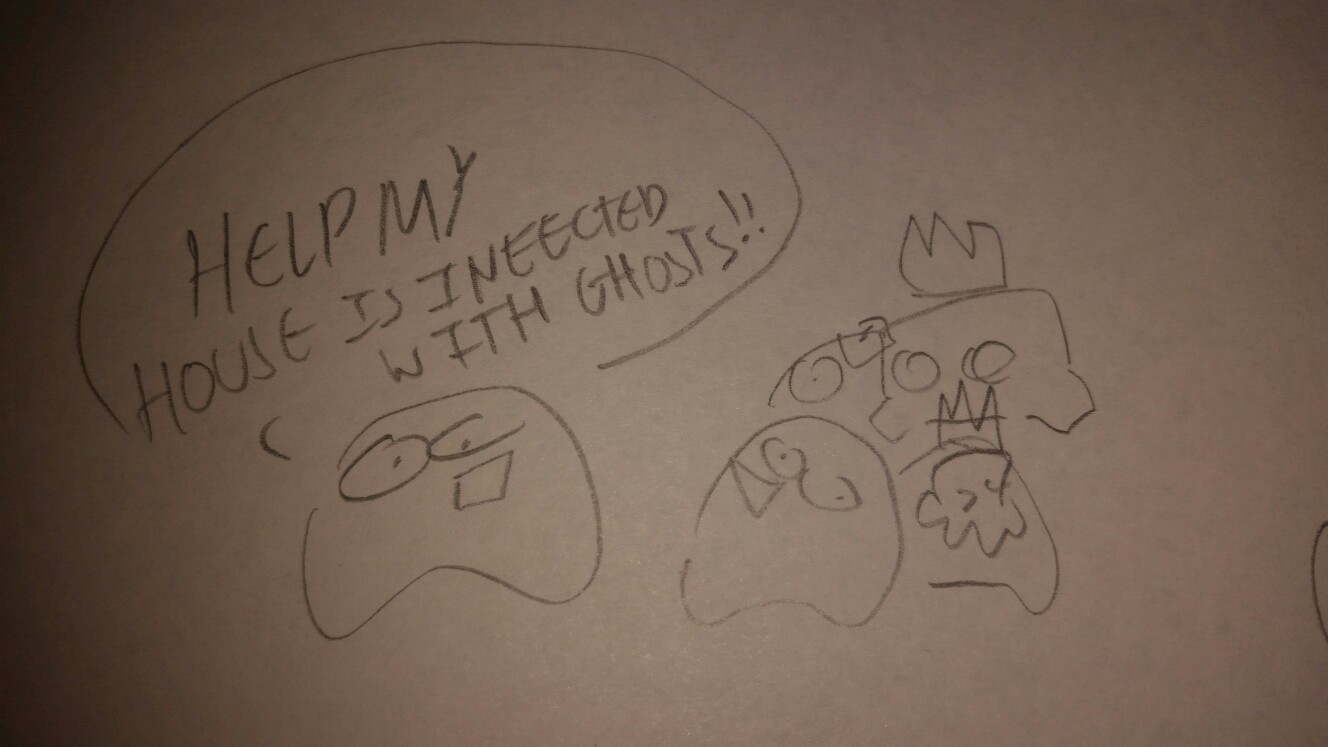 HELP MY
HOUSE IS INEECTED
WITH GHOSTS!!